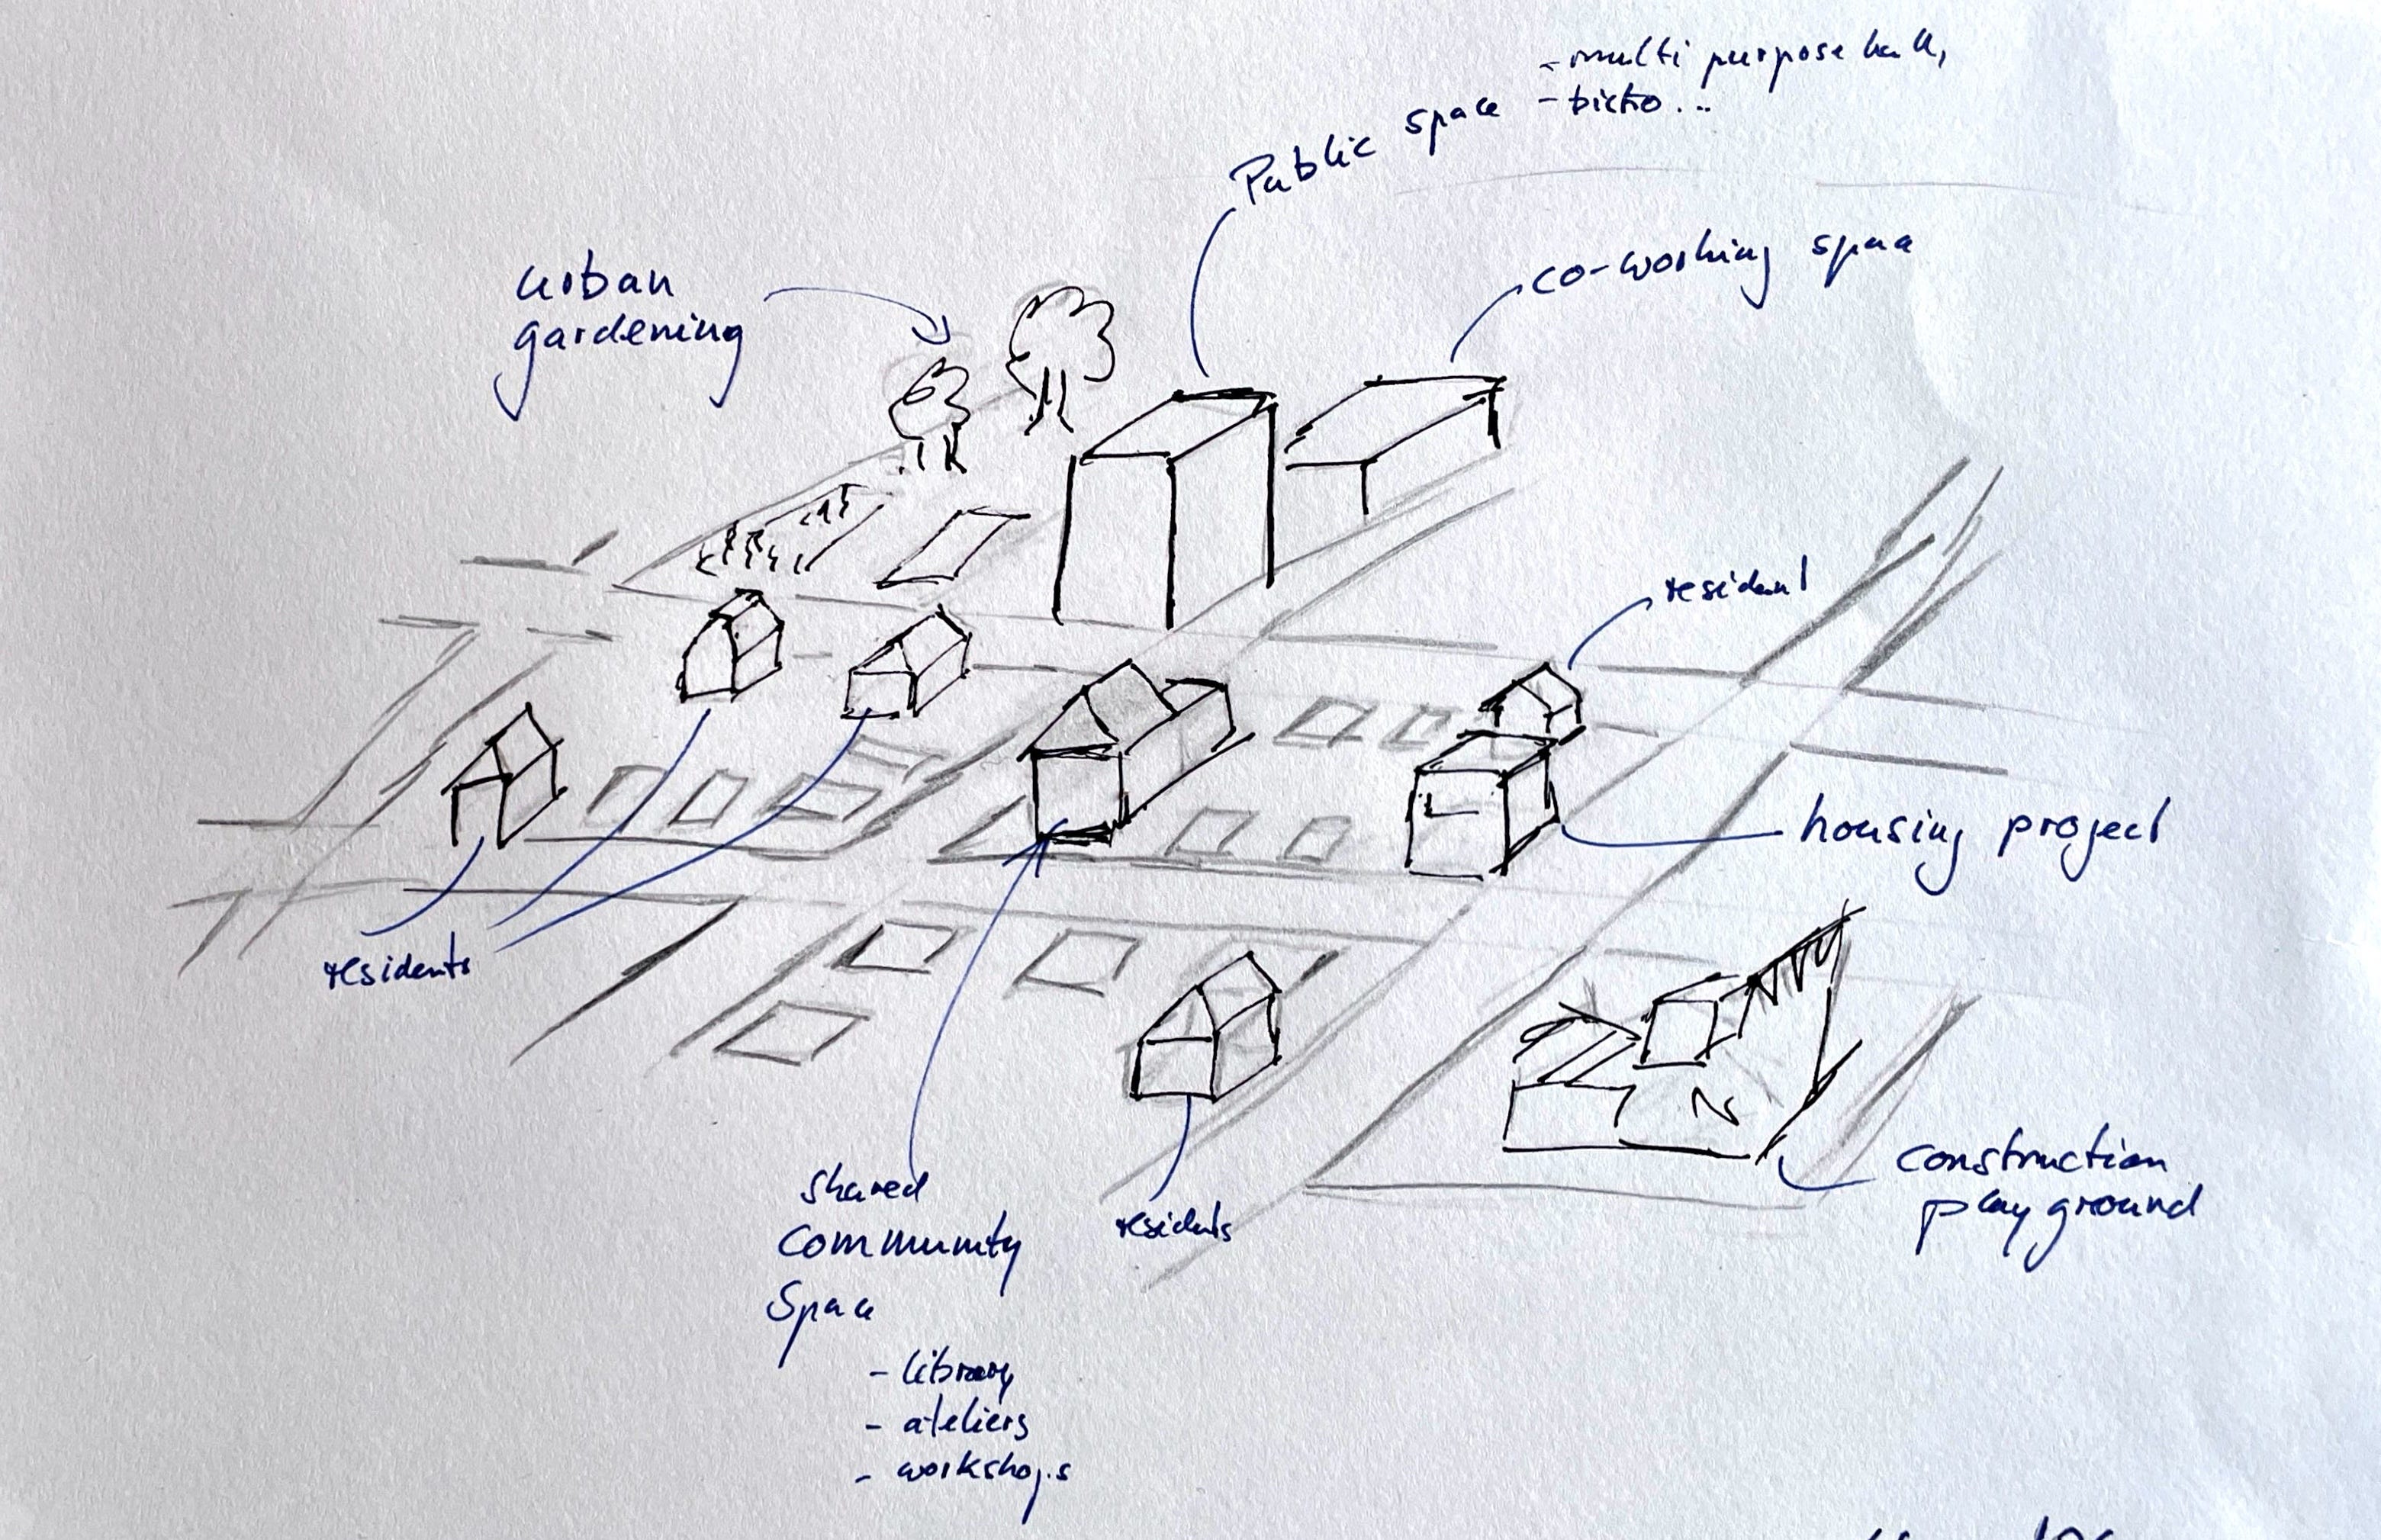 - multi purpose hall,
Public space - bistro...
co-working space
urban
gardening
resident
housing project
residents
construction
playground
shared
community
space
residents
- library
- ateliers
- workshops